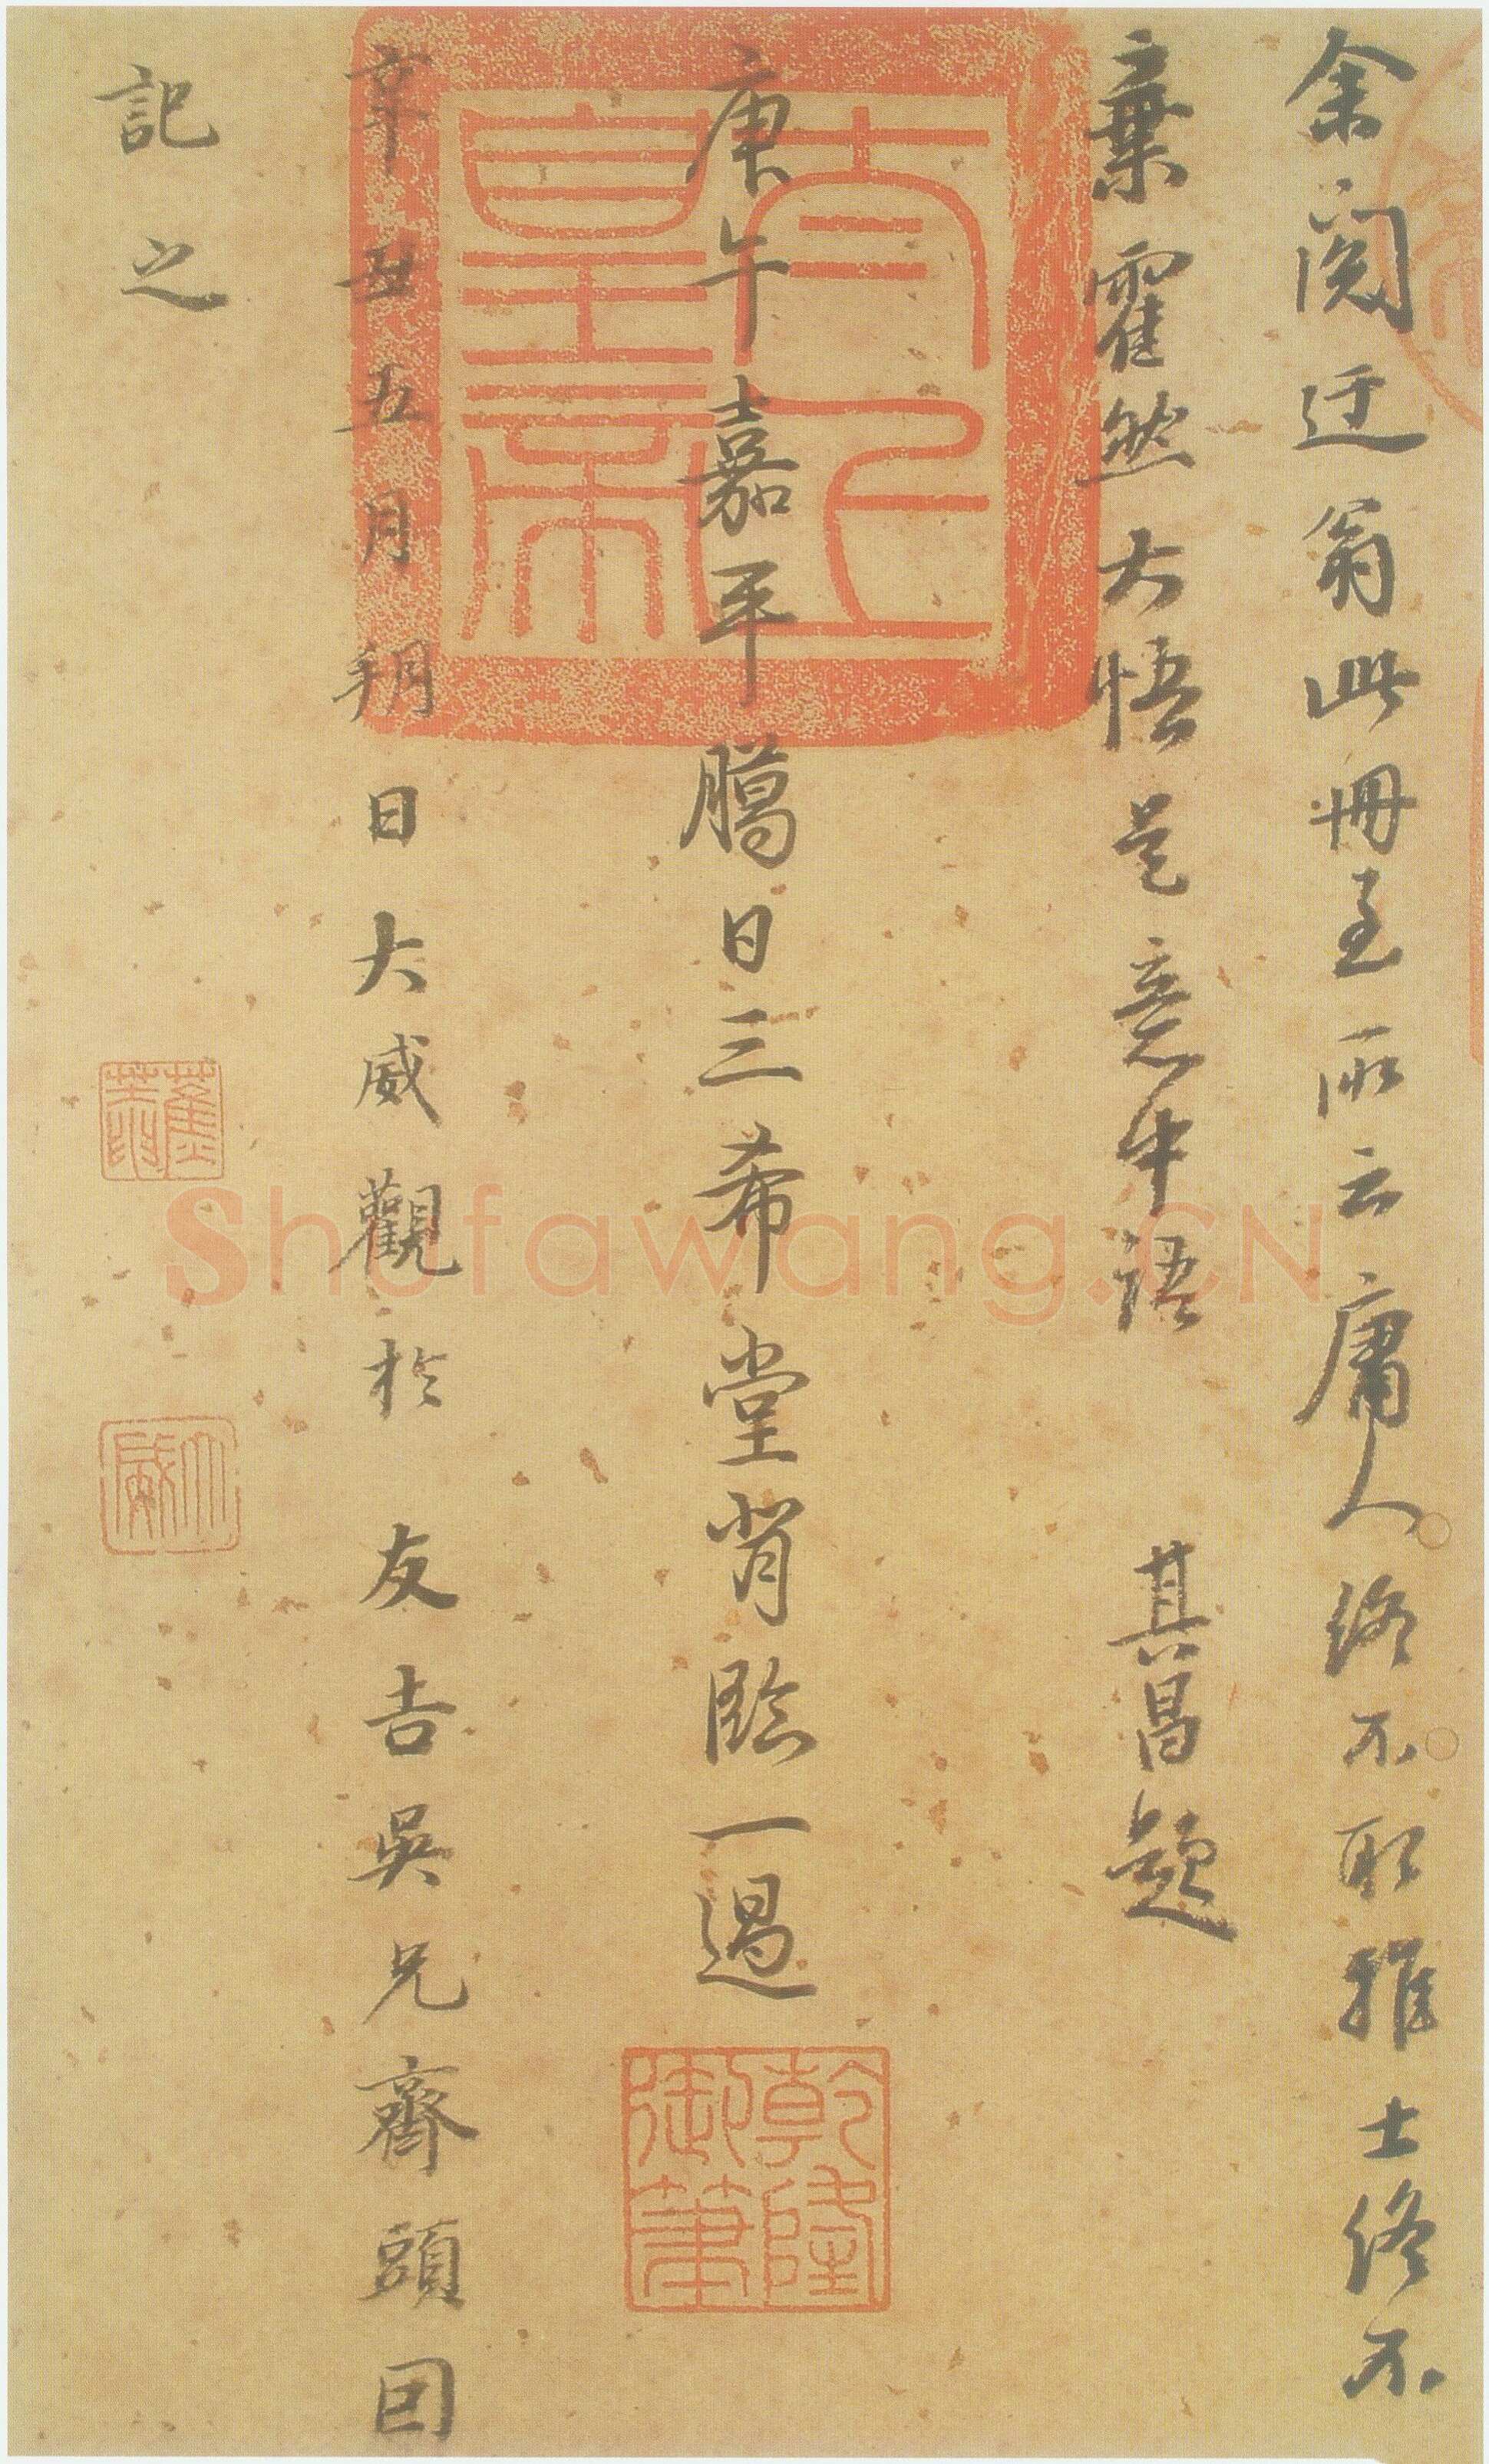 余閱迂翁此冊至所云庸人終不取雅士終不
棄霍然大悟是意中語　其昌題
太上皇帝
庚午嘉平臈日三希堂背臨一過
乾隆御筆
辛丑五月朔日大威觀於友吉吳兄齋頭囙
記之
大威
Shufawang.CN